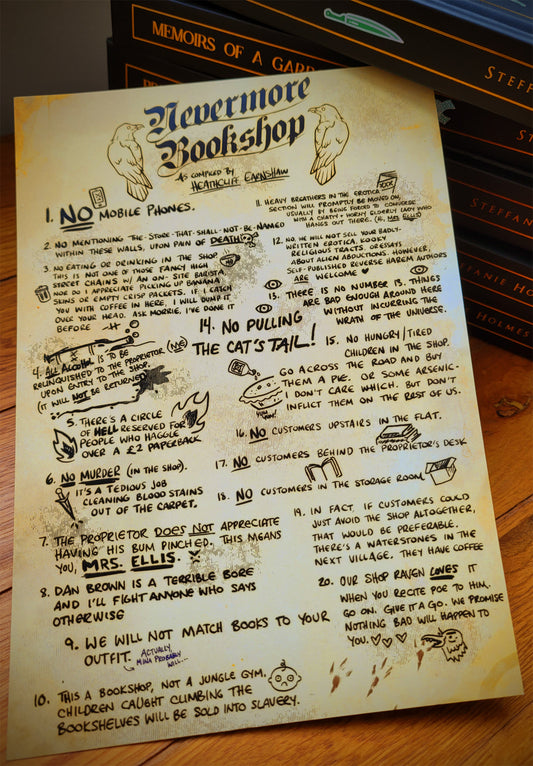 MEMOIRS OF A GARD
STEFFA
STEFFAN
STEFANIE HO
HOLMES
Nevermore
Bookshop
AS COMPILED BY
HEATHCLIFF EARNSHAW
1. NO MOBILE PHONES.
2. NO MENTIONING THE-STORE-THAT-SHALL-NOT-BE-NAMED
WITHIN THESE WALLS, UPON PAIN OF DEATH
3. NO EATING OR DRINKING IN THE SHOP
THIS IS NOT ONE OF THOSE FANCY HIGH
STREET CHAINS W/ AN ON-SITE BARISTA
NOR DO I APPRECIATE PICKING UP BANANA
SKINS OR EMPTY CRISP PACKETS. IF I CATCH
YOU WITH COFFEE IN HERE, I WILL DUMP IT
OVER YOUR HEAD. ASK MORRIE, I'VE DONE IT
BEFORE -H
4. ALL ALCOHOL IS TO BE
RELINQUISHED TO THE PROPRIETOR (ME)
UPON ENTRY TO THE SHOP.
(IT WILL NOT BE RETURNED)
5. THERE'S A CIRCLE
OF HELL RESERVED FOR
PEOPLE WHO HAGGLE
OVER A £2 PAPERBACK
6. NO MURDER (IN THE SHOP).
IT'S A TEDIOUS JOB
CLEANING BLOOD STAINS
OUT OF THE CARPET.
7. THE PROPRIETOR DOES NOT APPRECIATE
HAVING HIS BUM PINCHED. THIS MEANS
YOU, MRS. ELLIS.
8. DAN BROWN IS A TERRIBLE BORE
AND I'LL FIGHT ANYONE WHO SAYS
OTHERWISE
9. WE WILL NOT MATCH BOOKS TO YOUR
OUTFIT.
ACTUALLY,
MINA PROBABLY
WILL...
10. THIS A BOOKSHOP, NOT A JUNGLE GYM.
CHILDREN CAUGHT CLIMBING THE
BOOKSHELVES WILL BE SOLD INTO SLAVERY.
11. HEAVY BREATHERS IN THE EROTICA
SECTION WILL PROMPTLY BE MOVED ON,
USUALLY BY BEING FORCED TO CONVERSE
WITH A CHATTY + HORNY ELDERLY LADY WHO
HANGS OUT THERE. (HI, MRS ELLIS)
12. NO, WE WILL NOT SELL YOUR BADLY-
WRITTEN EROTICA, KOOKY
RELIGIOUS TRACTS, OR ESSAYS
ABOUT ALIEN ABDUCTIONS. HOWEVER,
SELF-PUBLISHED REVERSE HAREM AUTHORS
ARE WELCOME ♥
13. THERE IS NO NUMBER 13. THINGS
ARE BAD ENOUGH AROUND HERE
WITHOUT INCURRING THE
WRATH OF THE UNIVERSE.
14. NO PULLING
THE CAT'S TAIL!
15. NO HUNGRY/TIRED
CHILDREN IN THE SHOP.
GO ACROSS THE ROAD AND BUY
THEM A PIE. OR SOME ARSENIC.
I DON'T CARE WHICH. BUT DON'T
INFLICT THEM ON THE REST OF US.
16. NO CUSTOMERS UPSTAIRS IN THE FLAT.
17. NO CUSTOMERS BEHIND THE PROPRIETOR'S DESK
18. NO CUSTOMERS IN THE STORAGE ROOM
19. IN FACT, IF CUSTOMERS COULD
JUST AVOID THE SHOP ALTOGETHER,
THAT WOULD BE PREFERABLE.
THERE'S A WATERSTONES IN THE
NEXT VILLAGE. THEY HAVE COFFEE
20. OUR SHOP RAVEN LOVES IT
WHEN YOU RECITE POE TO HIM.
GO ON. GIVE IT A GO. WE PROMISE
NOTHING BAD WILL HAPPEN TO
YOU. ♡♡♡